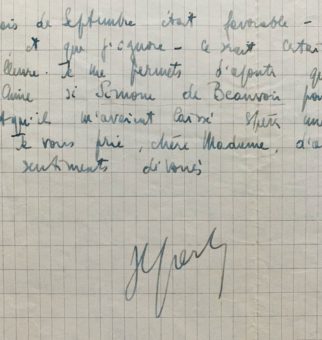 ois de Septembre était favorable -
et que j'ignore - ce serait certai
lleure. Je me permets d'ajouter qu
Anine si Simone de Beauvoir pou
qu'il m'avaient laissé espérer une
Je vous prie, chère Madame, d'a
sentiments dévoués